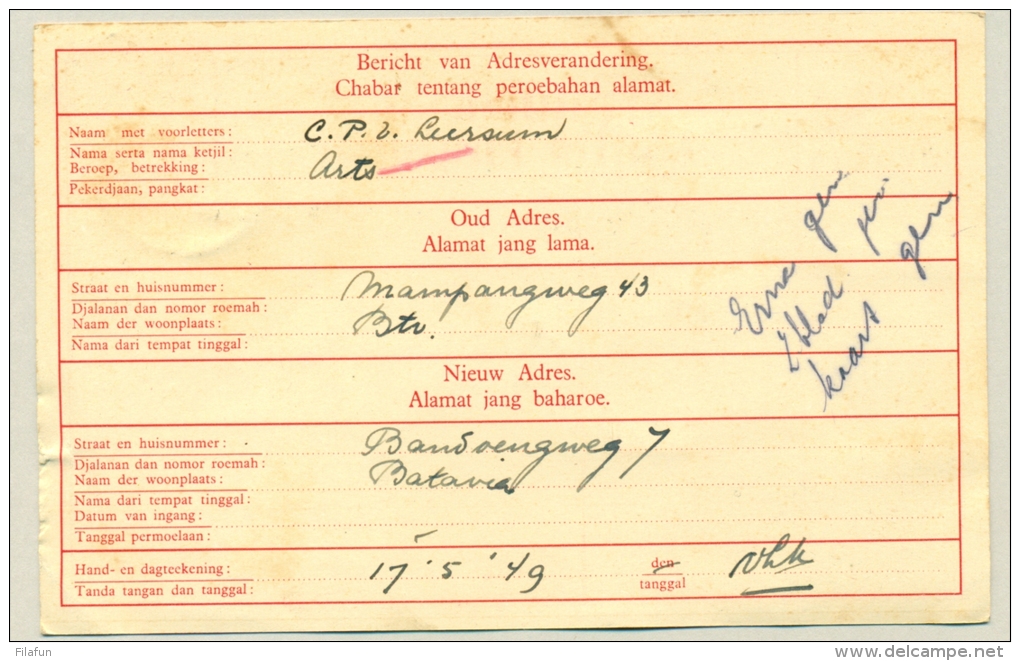 Bericht van Adresverandering.
Chabar tentang peroebahan alamat.
Naam met voorletters: C. P. v. Leersum
Nama serta nama ketjil:
Beroep, betrekking: Arts
Pekerdjaan, pangkat:
Oud Adres.
Alamat jang lama.
Straat en huisnummer: Mampangweg 43
Djalanan dan nomor roemah:
Naam der woonplaats: Btv.
Nama dari tempat tinggal:
Nieuw Adres.
Alamat jang baharoe.
Straat en huisnummer: Bandoengweg 7
Djalanan dan nomor roemah:
Naam der woonplaats: Batavia
Nama dari tempat tinggal:
Datum van ingang:
Tanggal permoelaan:
Hand- en dagteekening: 17 '5 '49 den
Tanda tangan dan tanggal: tanggal
kaart gem
Filafun
www.delcampe.net